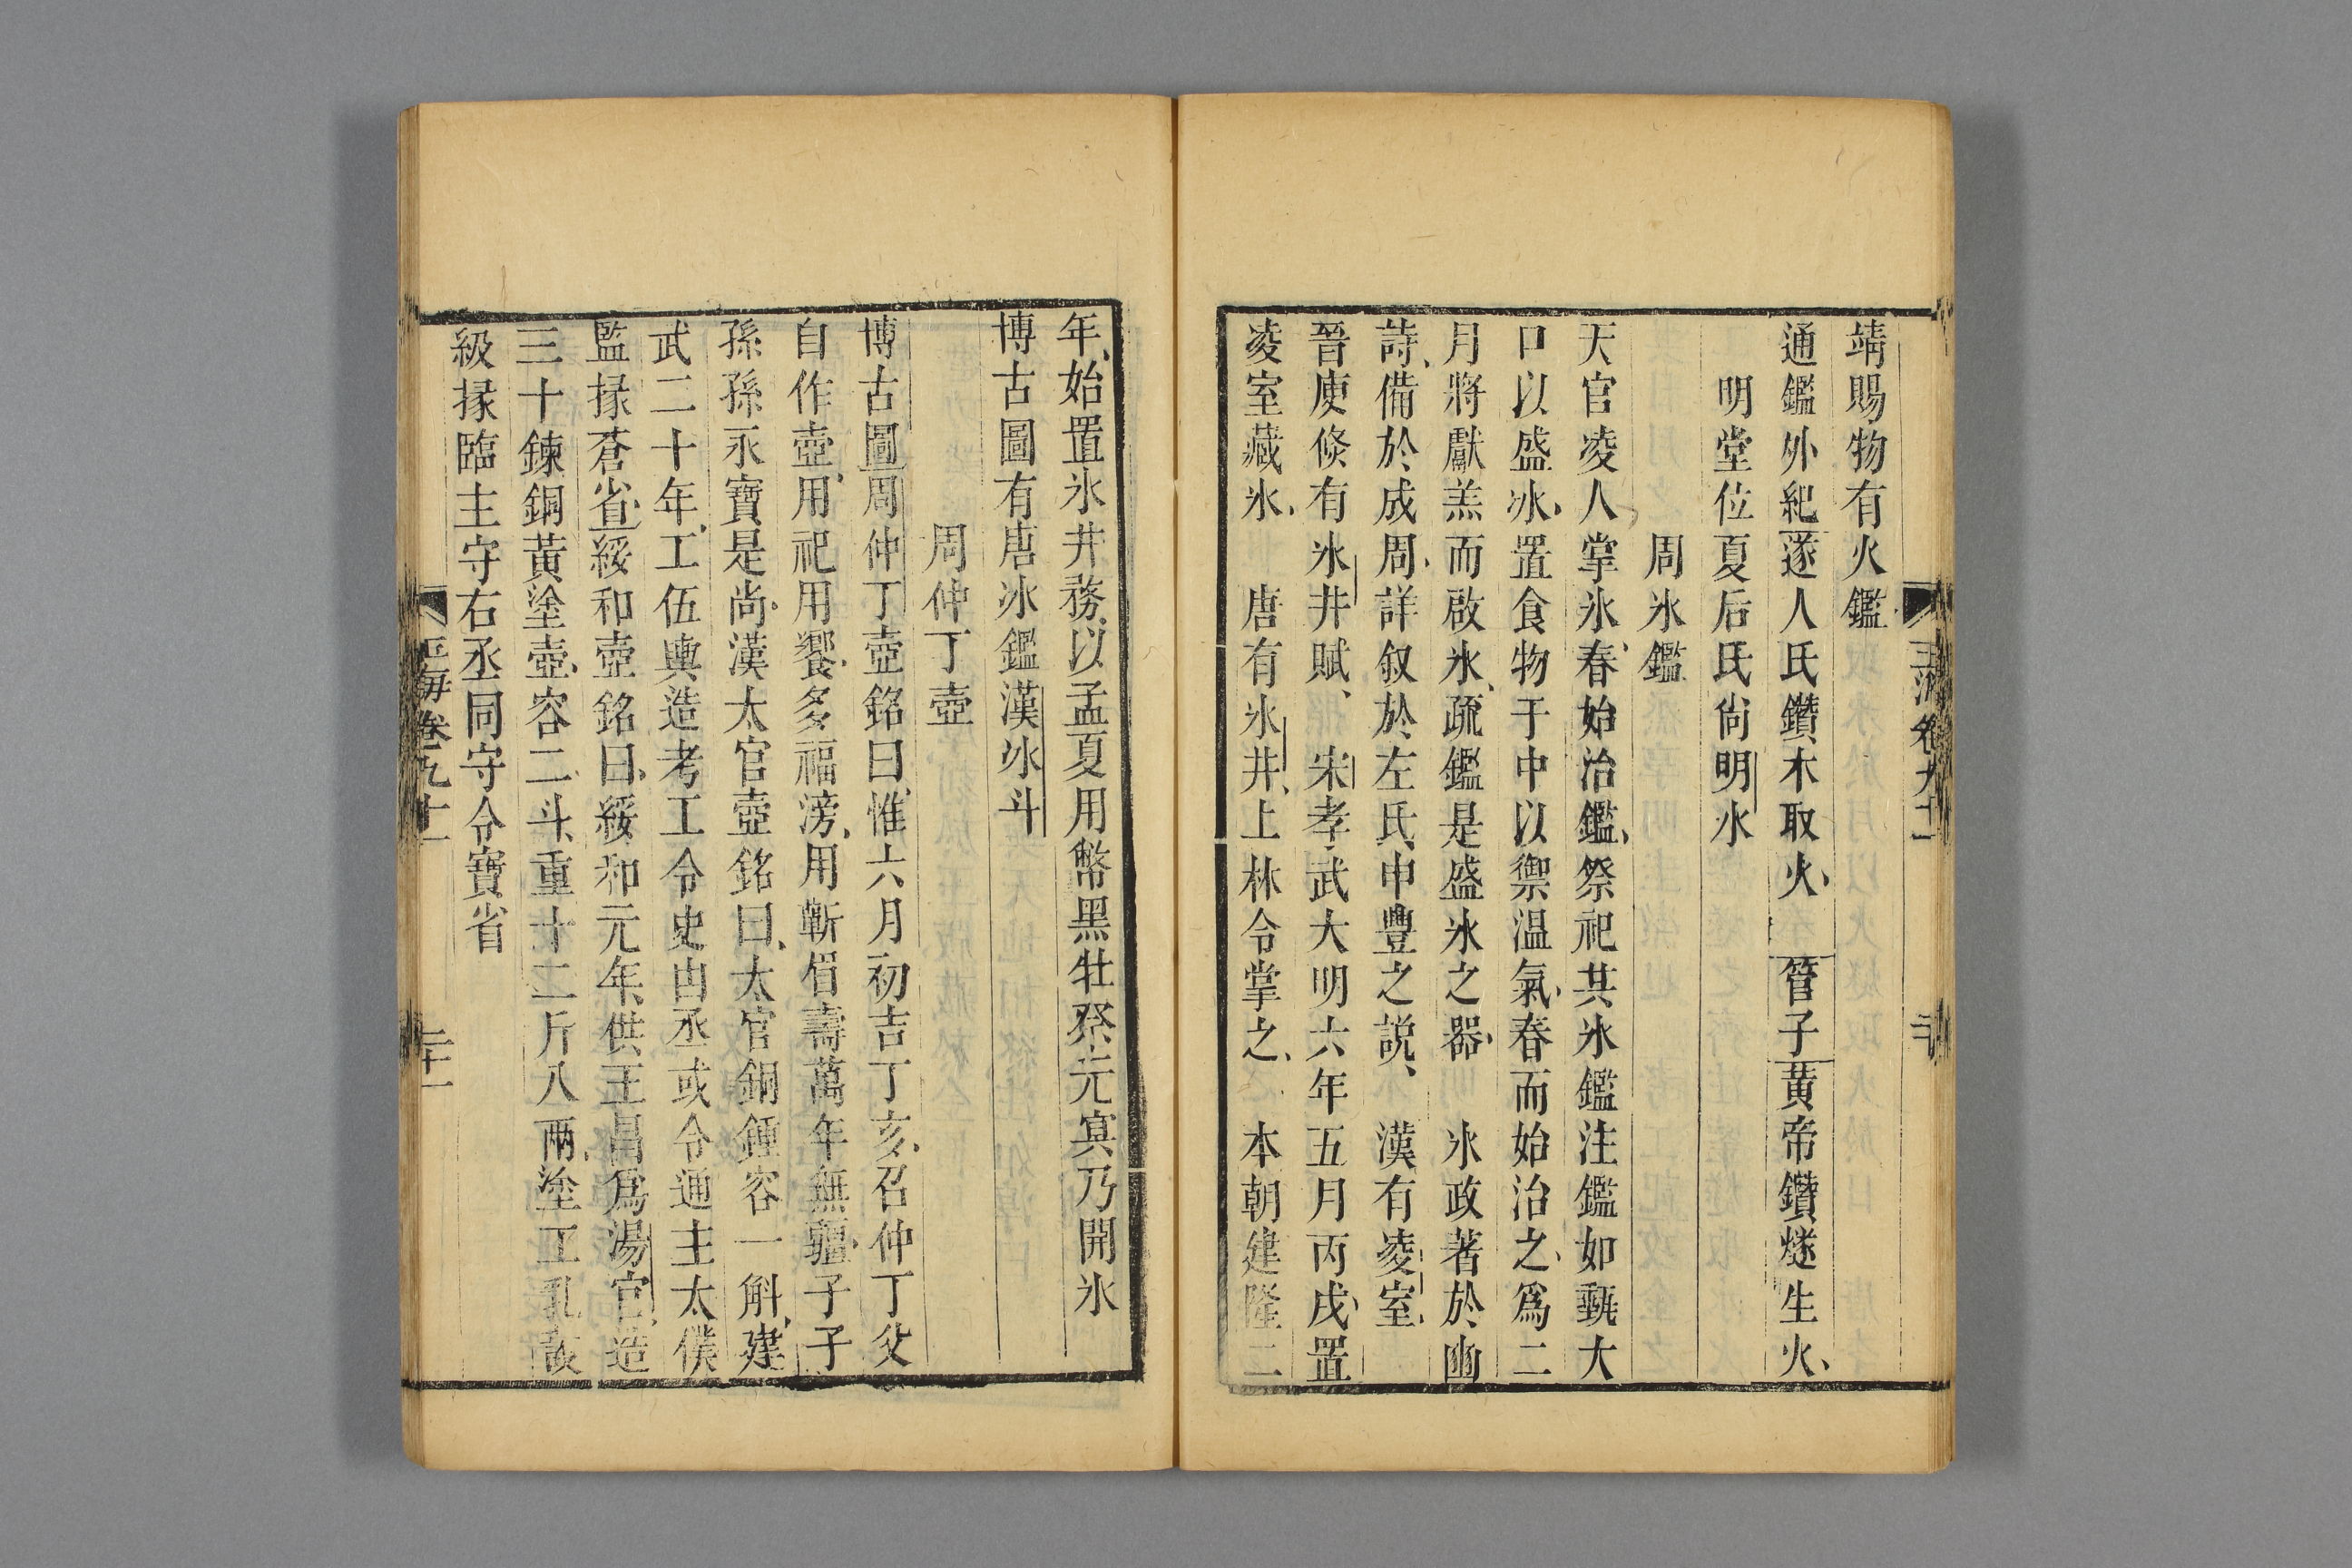 靖賜物有火鑑
通鑑外紀遂人氏鑽木取火、　管子黄帝鑽燧生火、
明堂位夏后氏尙明水
周氷鑑
天官凌人掌氷、春始治鑑、祭祀共氷鑑注鑑如甀大
口以盛冰、置食物于中以禦温氣、春而始治之、爲二
月將獻羔而啟氷、疏鑑是盛氷之器、　氷政著於豳
詩、備於成周、詳叙於左氏申豐之説、　漢有凌室、
晉庾儵有氷井賦、　宋孝武大明六年五月丙戌、置
凌室藏氷、　唐有氷井、上林令掌之、　本朝建隆二
年、始置氷井務、以孟夏用幣黑牡祭元冥乃開氷
博古圖有唐冰鑑漢冰斗
周仲丁壺
博古圖周仲丁壺銘曰、惟六月初吉丁亥、召仲丁父
自作壺、用祀用饗、多福滂、用蘄眉壽萬年無疆、子子
孫孫永寶是尚、漢太官壺銘曰、太官銅鍾容一斛、建
武二十年、工伍輿造考工令史由丞或令通主太僕
監掾蒼省、綏和壺銘曰、綏和元年、供王昌爲湯官、造
三十鍊銅黃塗壺、容二斗、重十二斤八兩、塗工乳護
級掾臨主守右丞同守令寶省
玉海卷九十一
二十
玉海卷九十一
二十一